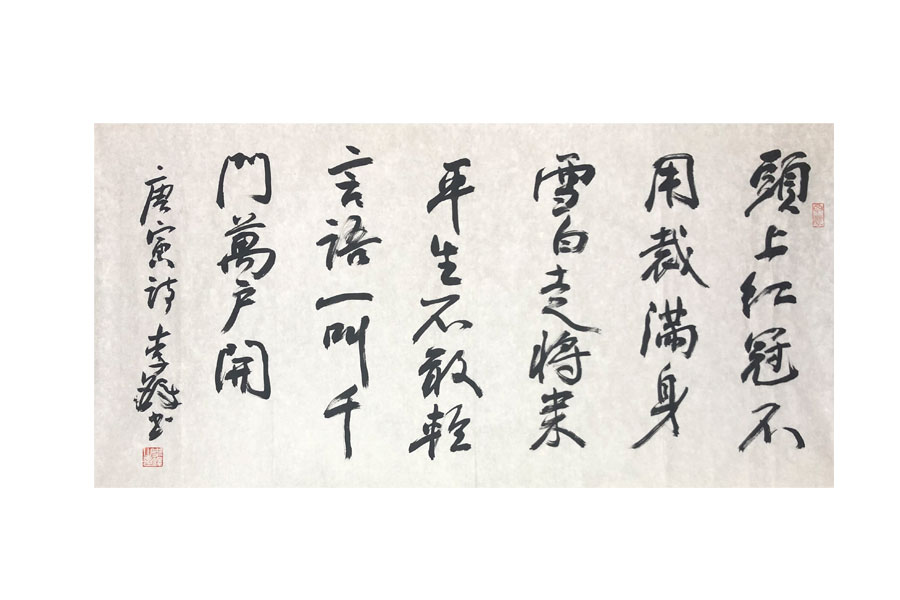 頭上紅冠不
用裁滿身
雪白走將来
平生不敢輕
言語一叫千
門萬户開
唐寅詩李書